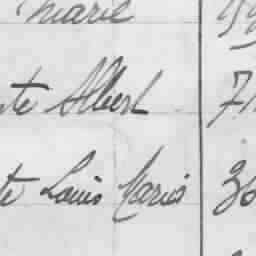 Marie
te Albert 7
te Louis Marius 36